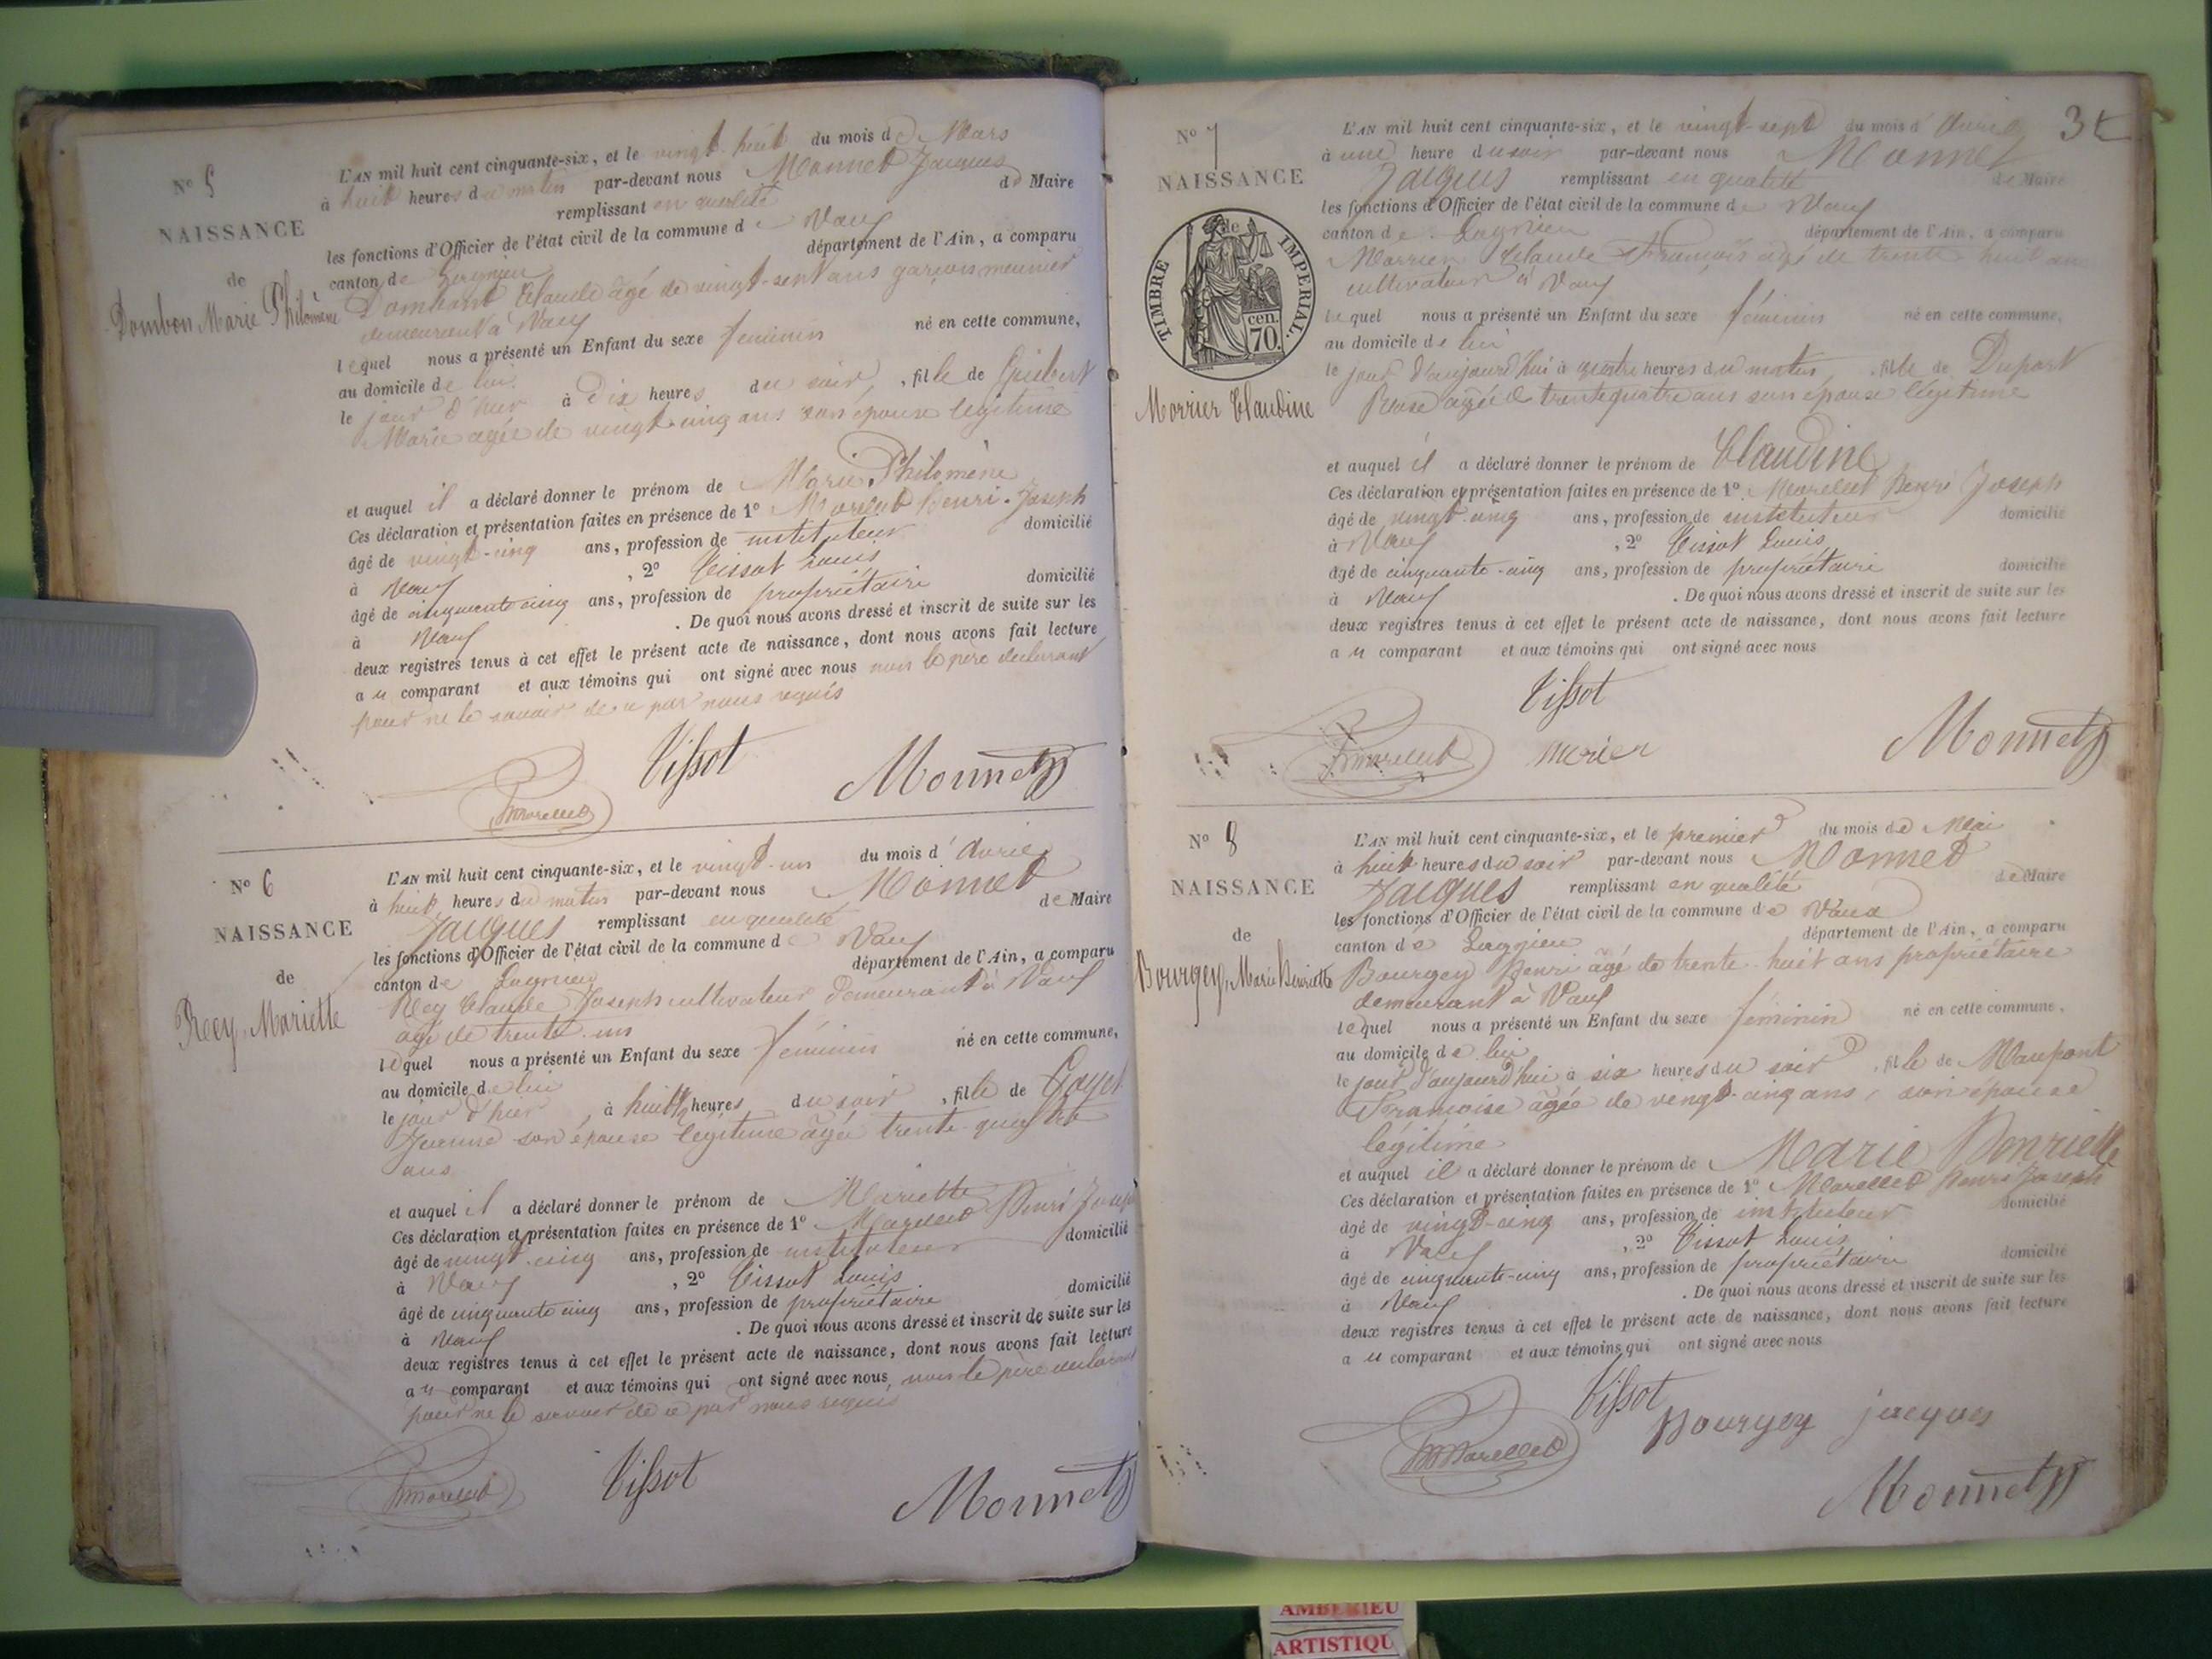 N° 5
NAISSANCE
de
Dombon Marie Philomène
L'AN mil huit cent cinquante-six, et le vingt-huit du mois de Mars
à huit heures du matin par-devant nous Monnet Jacques
remplissant en qualité de Maire
les fonctions d'Officier de l'état civil de la commune de Vaux
canton de Lagnieu département de l'Ain, a comparu
Claude âgé de vingt-sept ans garçon meunier
demeurant à Vaux
lequel nous a présenté un Enfant du sexe féminin né en cette commune,
au domicile de lui
le jour d'hier à dix heures du soir, fille de Guibert
Marie agée de vingt-cinq ans son épouse légitime
et auquel il a déclaré donner le prénom de Marie Philomène
Ces déclaration et présentation faites en présence de 1° Morellet Henri-Joseph
âgé de vingt-cinq ans, profession de instituteur domicilié
à Vaux, 2° Tissot Louis
âgé de cinquante cinq ans, profession de propriétaire domicilié
à Vaux. De quoi nous avons dressé et inscrit de suite sur les
deux registres tenus à cet effet le présent acte de naissance, dont nous avons fait lecture
au comparant et aux témoins qui ont signé avec nous non le père déclarant
pour ne le savoir de ce par nous requis
Tissot
Morellet
Monnet
N° 6
NAISSANCE
de
Reey, Mariette
L'AN mil huit cent cinquante-six, et le vingt-un du mois d'Avril
à huit heures du matin par-devant nous Monnet
Jacques remplissant en qualité de Maire
les fonctions d'Officier de l'état civil de la commune de Vaux
canton de Lagnieu département de l'Ain, a comparu
Rey Claude Joseph cultivateur demeurant à Vaux
agé de trente-un
lequel nous a présenté un Enfant du sexe féminin né en cette commune,
au domicile de lui
le jour d'hier, à huit heures du soir, fille de Goyet
Jeanne son épouse légitime âgée trente-quatre
ans
et auquel il a déclaré donner le prénom de Mariette
Ces déclaration et présentation faites en présence de 1° Morellet Henri Joseph
âgé de vingt-cinq ans, profession de instituteur domicilié
à Vaux, 2° Tissot Louis
âgé de cinquante cinq ans, profession de propriétaire domicilié
à Vaux. De quoi nous avons dressé et inscrit de suite sur les
deux registres tenus à cet effet le présent acte de naissance, dont nous avons fait lecture
au comparant et aux témoins qui ont signé avec nous, non le père déclarant
pour ne le savoir de ce par nous requis
Morellet
Tissot
Monnet
3
N° 7
NAISSANCE
TIMBRE IMPERIAL.
cen.
70.
Morrier Claudine
L'AN mil huit cent cinquante-six, et le vingt-sept du mois d'Avril
à une heure du soir par-devant nous Monnet
Jacques remplissant en qualité de Maire
les fonctions d'Officier de l'état civil de la commune de Vaux
canton de Lagnieu département de l'Ain, a comparu
Morrier Claude François agé de trente huit an
cultivateur à Vaux
lequel nous a présenté un Enfant du sexe féminin né en cette commune,
au domicile de lui
le jour d'aujourd'hui à quatre heures du matin, fille de Duport
agée de trente quatre ans son épouse légitime
et auquel il a déclaré donner le prénom de Claudine
Ces déclaration et présentation faites en présence de 1° Morellet Henri Joseph
âgé de vingt-cinq ans, profession de instituteur domicilié
à Vaux, 2° Tissot Louis
âgé de cinquante-cinq ans, profession de propriétaire domicilié
à Vaux. De quoi nous avons dressé et inscrit de suite sur les
deux registres tenus à cet effet le présent acte de naissance, dont nous avons fait lecture
au comparant et aux témoins qui ont signé avec nous
Tissot
Morellet
morier
Monnet
N° 8
NAISSANCE
de
Bourgey, Marie Henriette
L'AN mil huit cent cinquante-six, et le premier du mois de Mai
à huit heures du soir par-devant nous Monnet
Jacques remplissant en qualité de Maire
les fonctions d'Officier de l'état civil de la commune de Vaux
canton de Lagnieu département de l'Ain, a comparu
Bourgey Henri âgé de trente-huit ans propriétaire
demeurant à Vaux
lequel nous a présenté un Enfant du sexe féminin né en cette commune,
au domicile de lui
le jour d'aujourd'hui à six heures du soir, fille de Maupont
Françoise âgée de vingt-cinq ans, son épouse
légitime
et auquel il a déclaré donner le prénom de Marie Henriette
Ces déclaration et présentation faites en présence de 1° Morellet Henri Joseph
âgé de vingt-cinq ans, profession de instituteur domicilié
à Vaux, 2° Tissot Louis
âgé de cinquante-cinq ans, profession de propriétaire domicilié
à Vaux. De quoi nous avons dressé et inscrit de suite sur les
deux registres tenus à cet effet le présent acte de naissance, dont nous avons fait lecture
au comparant et aux témoins qui ont signé avec nous
Tissot
Morellet
Bourgey jacques
Monnet
AMBERIEU
ARTISTIQU